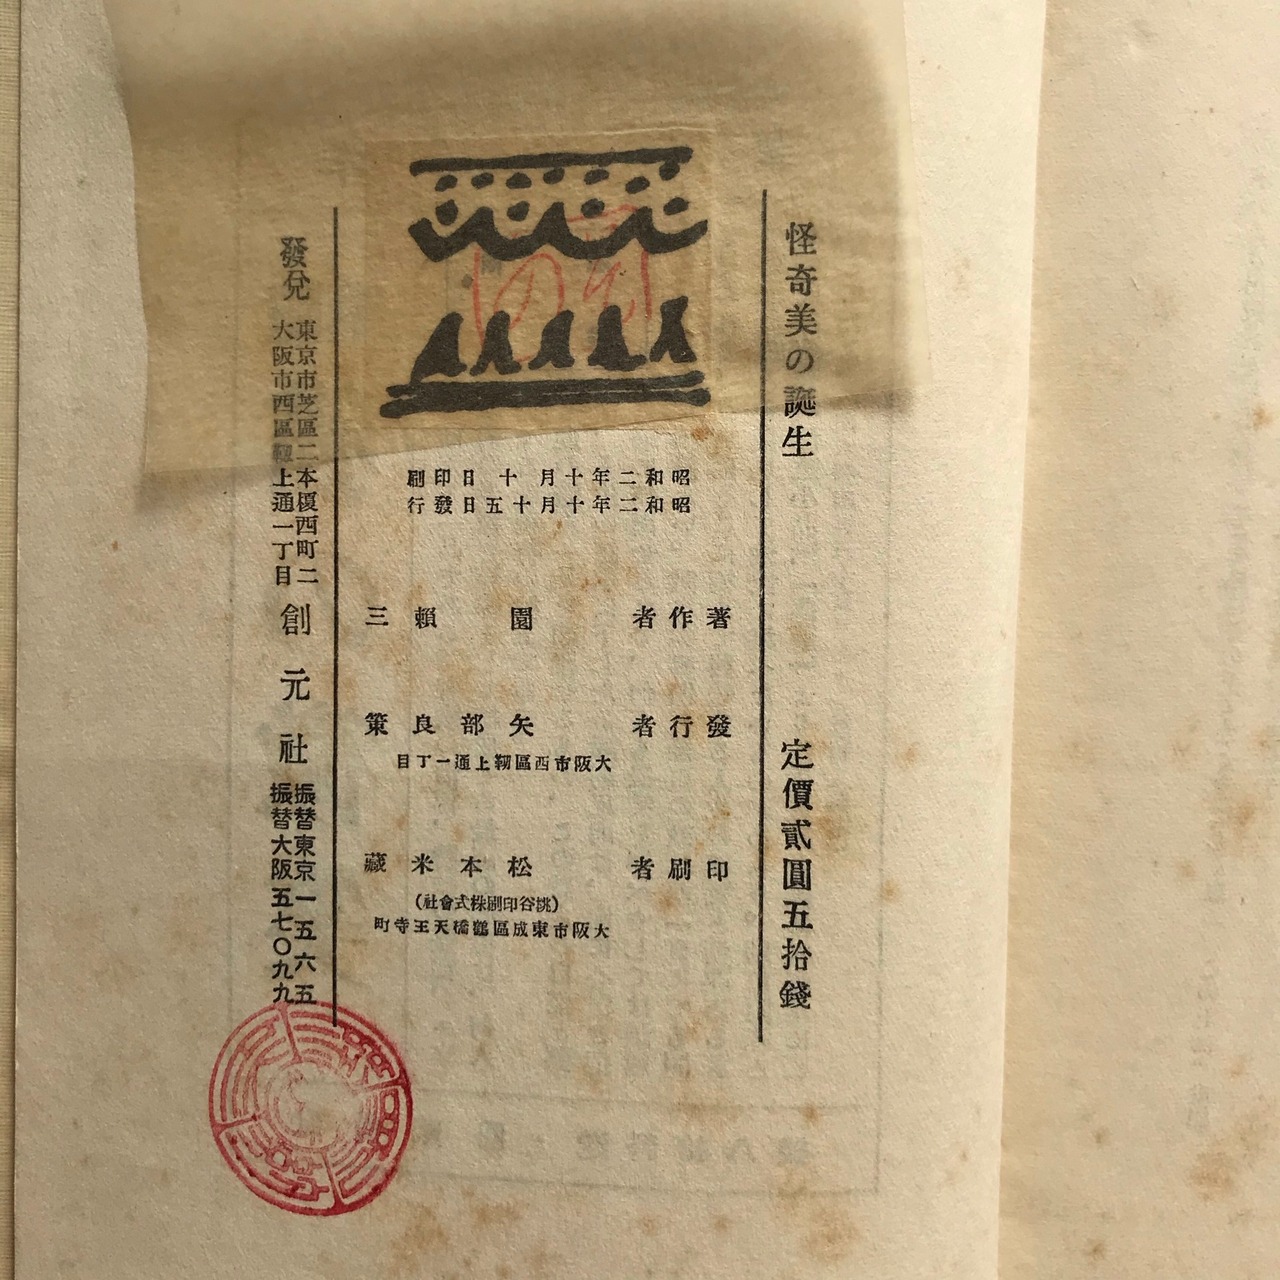 怪奇美の誕生
定價貳圓五拾錢
昭和二年十月十日印刷
昭和二年十月十五日發行
著作者 園賴三
發行者 矢部良策
大阪市西區靱上通一丁目
印刷者 松本米藏
(桃谷印刷株式會社)
大阪市東成區鶴橋天王寺町
發兌
東京市芝區二本榎西町二
大阪市西區靱上通一丁目
創元社
振替東京一五六五
振替大阪五七〇九九